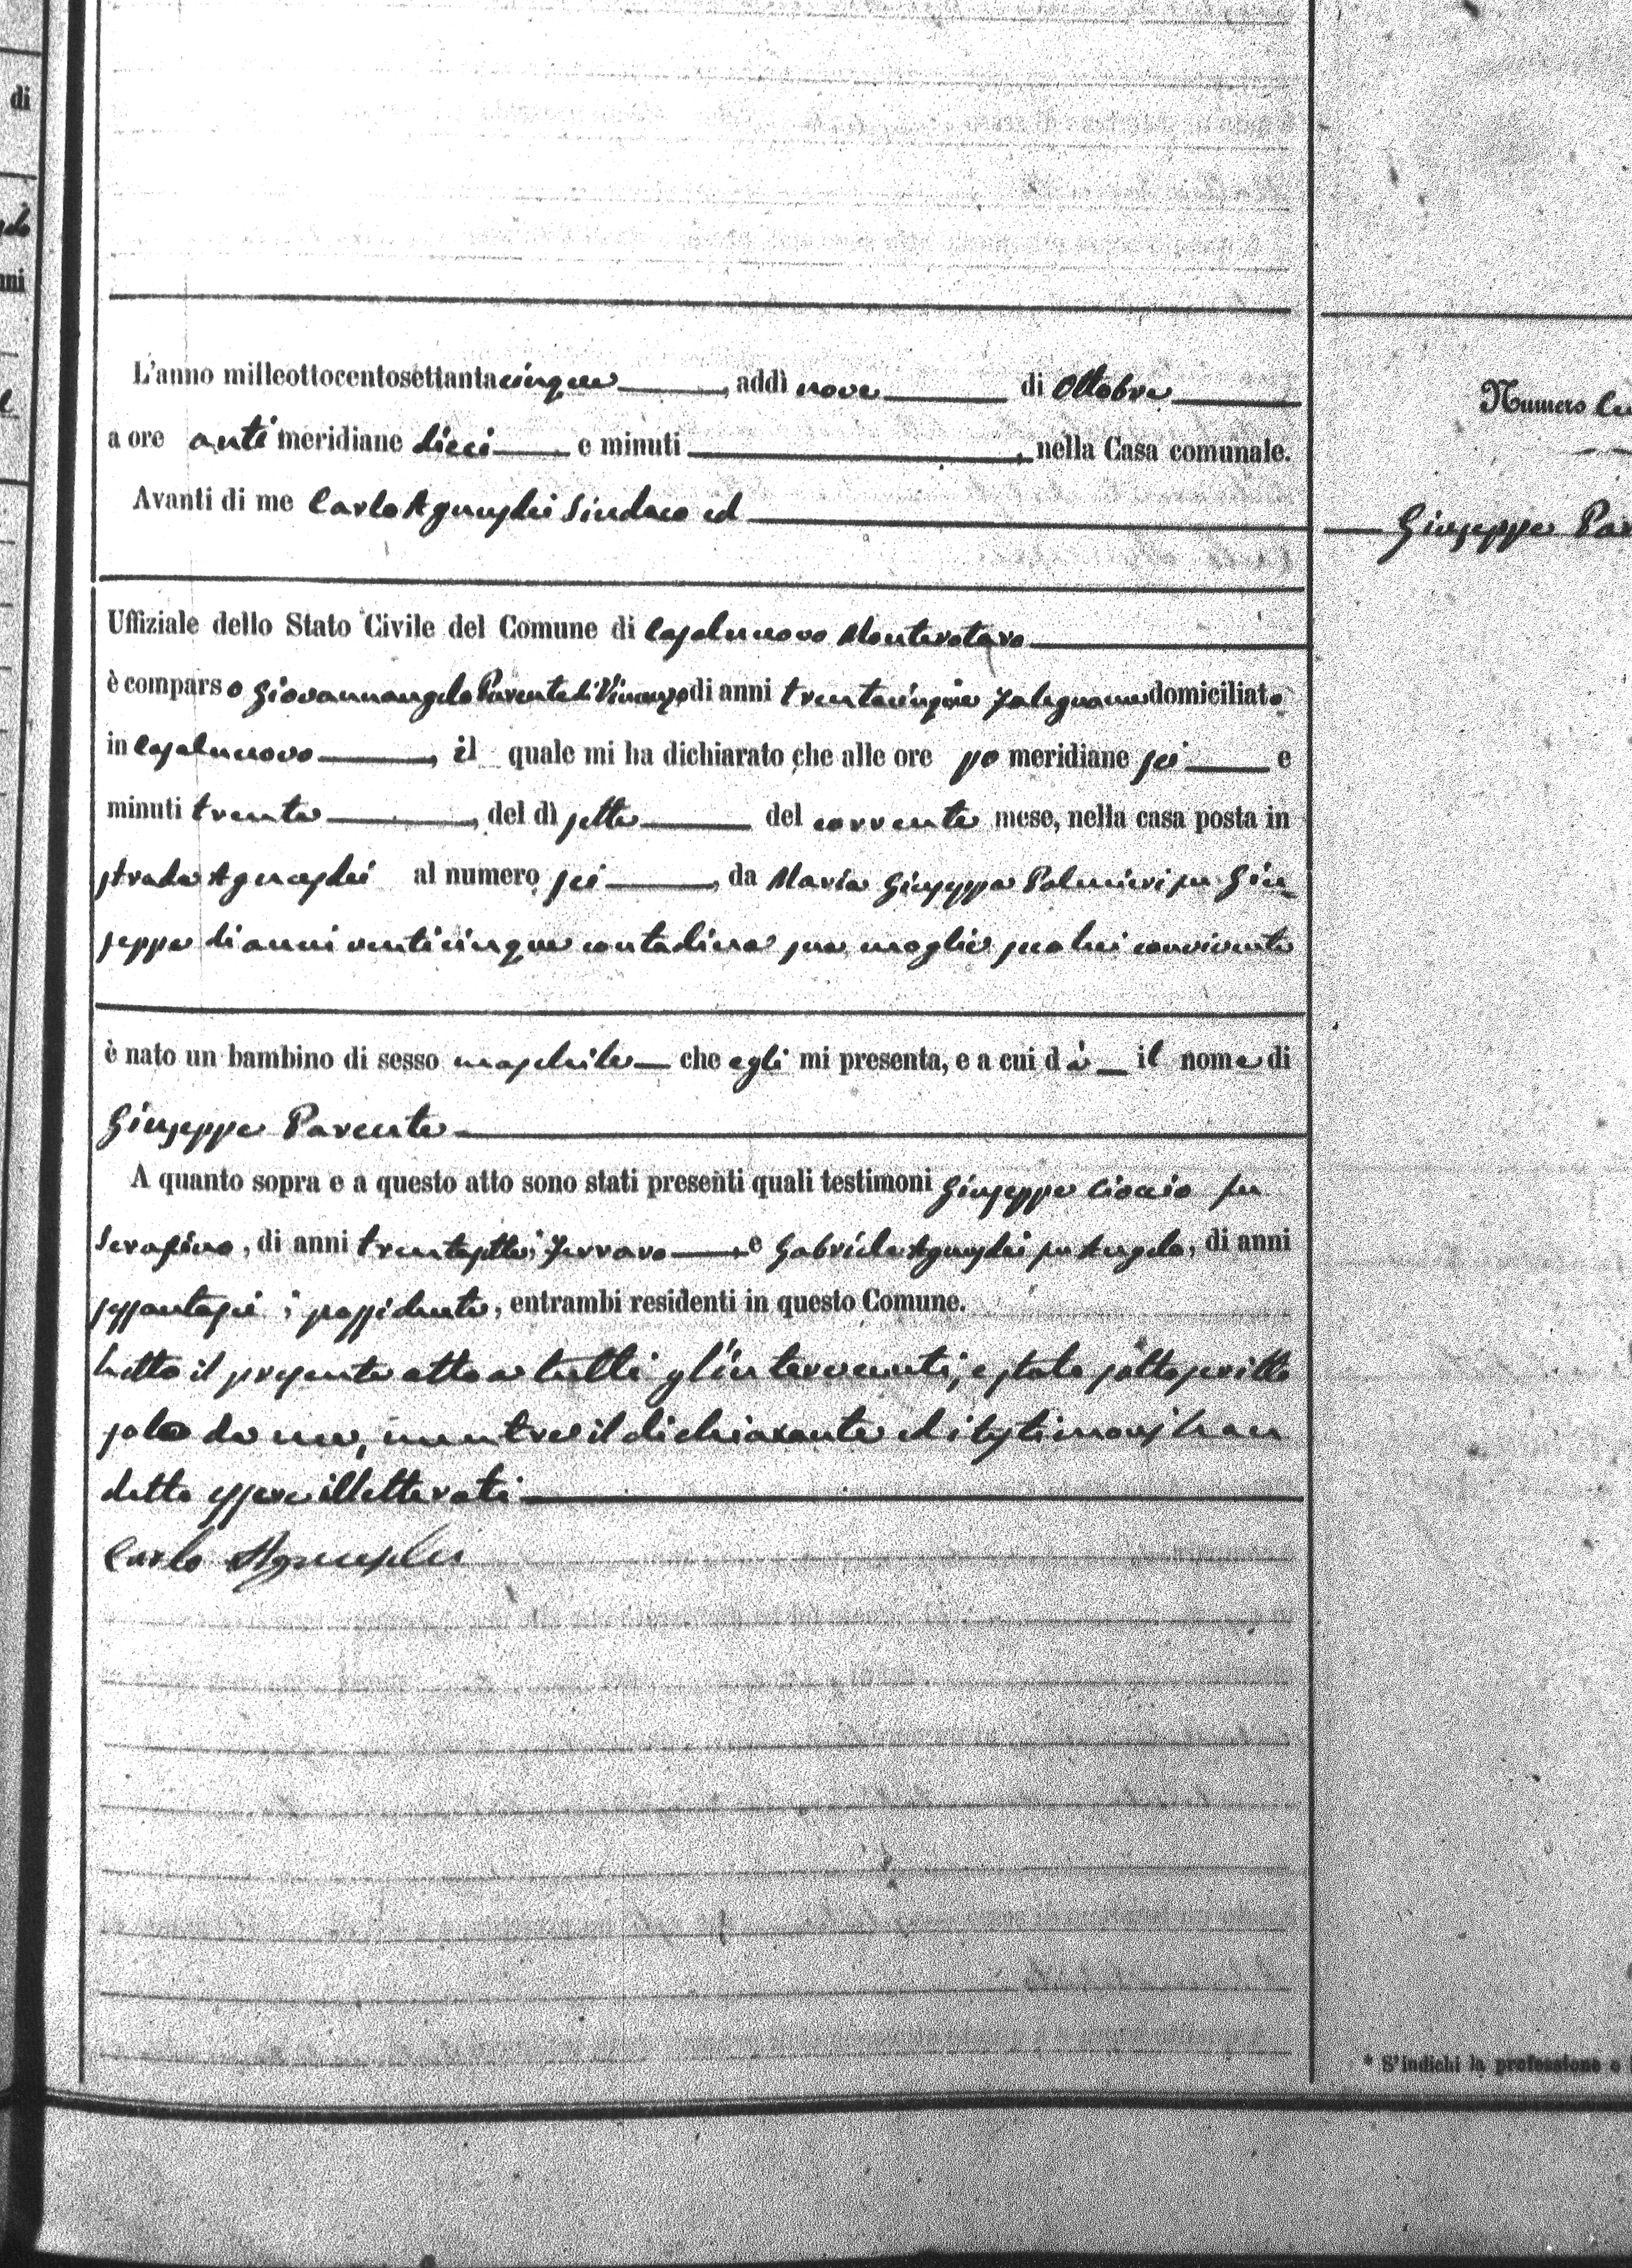 di
nni
L'anno milleottocentosettantacinque, addì nove di Ottobre
a ore anti meridiane dieci e minuti, nella Casa comunale.
Avanti di me Carlo Agnusdei Sindaco ed
Uffiziale dello Stato Civile del Comune di Casalnuovo Monterotaro
è comparso Giovannangelo Parente di Vincenzo di anni trentacinque falegname domiciliato
in Casalnuovo, il quale mi ha dichiarato che alle ore po meridiane sei e
minuti trenta, del dì sette del corrente mese, nella casa posta in
strada Agnusdei al numero sei, da Maria Giuseppa Palmieri fu Giu-
seppe di anni venticinque contadina sua moglie seco lui convivente
è nato un bambino di sesso maschile che egli mi presenta, e a cui dà il nome di
Giuseppe Parente
A quanto sopra e a questo atto sono stati presenti quali testimoni Giuseppe Cioccio fu
Serafino, di anni trentasette, Ferraro e Gabriele Agnusdei fu Angelo, di anni
sessantasei, possidente, entrambi residenti in questo Comune.
Letto il presente atto a tutti gl'intervenuti, è stato sottoscritto
solo da me, mentre il dichiarante ed i testimonj han
detto essere illetterati
Carlo Agnusdei
Numero
Giuseppe Par
* S'indichi la professione o